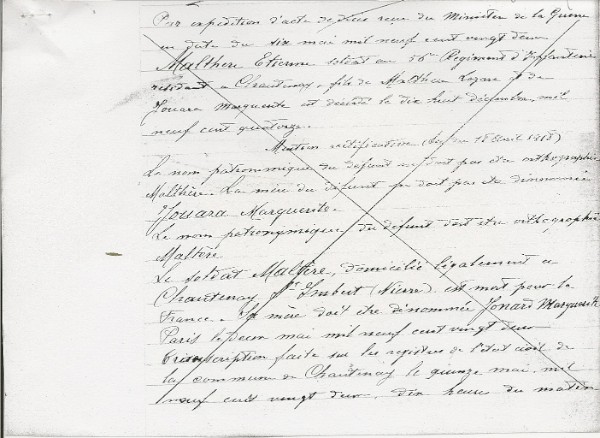 Par expédition d'acte de décès reçue du Ministère de la Guerre
en date du six mai mil neuf cent vingt deux
Malthère Etienne soldat au 56e Régiment d'Infanterie
résidant à Chantenay fils de Malthère Lazare et de
Jouara Marguerite est décédé le dix huit décembre mil
neuf cent quatorze.
Mention rectificative (loi du 18 1918)
Le nom patronymique du défunt ne doit pas être orthographié
Malthère. La mère du défunt ne doit pas être dénommée
Jouara Marguerite.
Le nom patronymique du défunt doit être orthographié
Maltère
Le soldat Maltère, domicilié légalement à
Chantenay St Imbert (Nièvre) est mort pour la
France. Sa mère doit être dénommée Jonard Marguerite
Paris le deux mai mil neuf cent vingt deux
transcription faite sur les registres de l'état civil de
la commune de Chantenay le quinze mai mil
neuf cent vingt deux, dix heures du matin